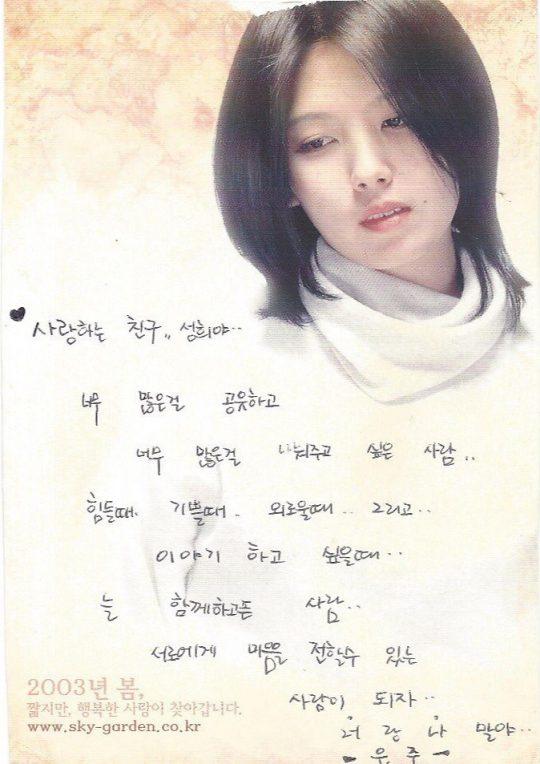 ♥ 사랑하는 친구,, 성희야..
너무 많은걸 공유하고
너무 많은걸 나눠주고 싶은 사람..
힘들때. 기쁠때. 외로울때.. 그리고..
이야기 하고 싶을때..
늘 함께하고픈 사람..
서로에게 마음을 전할수 있는
사람이 되자..
너랑 나 말야..
- 우.주 -
2003년 봄,
짧지만, 행복한 사랑이 찾아갑니다.
www.sky-garden.co.kr